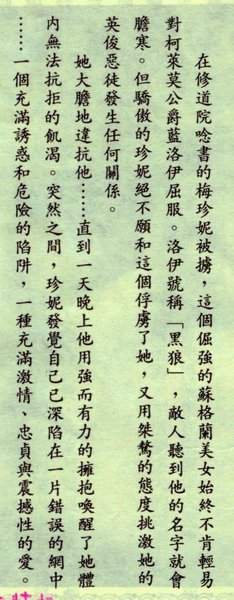 在修道院唸書的梅珍妮被擄，這個倔強的蘇格蘭美女始終不肯輕易
對柯萊莫公爵藍洛伊屈服。洛伊號稱「黑狼」，敵人聽到他的名字就會
膽寒。但驕傲的珍妮絕不願和這個俘虜了她，又用桀驁的態度挑激她的
英俊惡徒發生任何關係。
她大膽地違抗他……直到一天晚上他用強而有力的擁抱喚醒了她體
內無法抗拒的飢渴。突然之間，珍妮發覺自己已深陷在一片錯誤的網中
……一個充滿誘惑和危險的陷阱，一種充滿激情、忠貞與震撼性的愛。